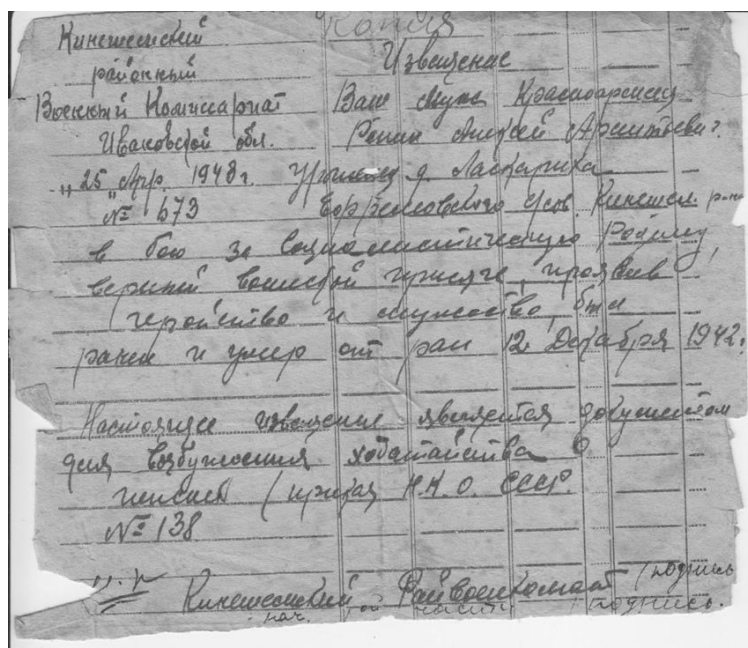 Копия
Кинешемский
районный
Извещение
Военный Комиссариат Ваш муж Красноармеец
Ивановской обл. Репин Андрей
"25" Апр. 1943г. Уроженец д. Ласкариха
№ 673 Ефремовского с/сов. Кинешем. р-на
в бою за социалистическую Родину,
верный воинской присяге, проявив
геройство и мужество, был
ранен и умер от ран 12 Декабря 1942г.
Настоящее извещение является документом
для возбуждения ходатайства о
пенсии (приказ Н.К.О. СССР.
№ 138
Кинешемский Райвоенкомат /подпись
нач. ой части подпись.